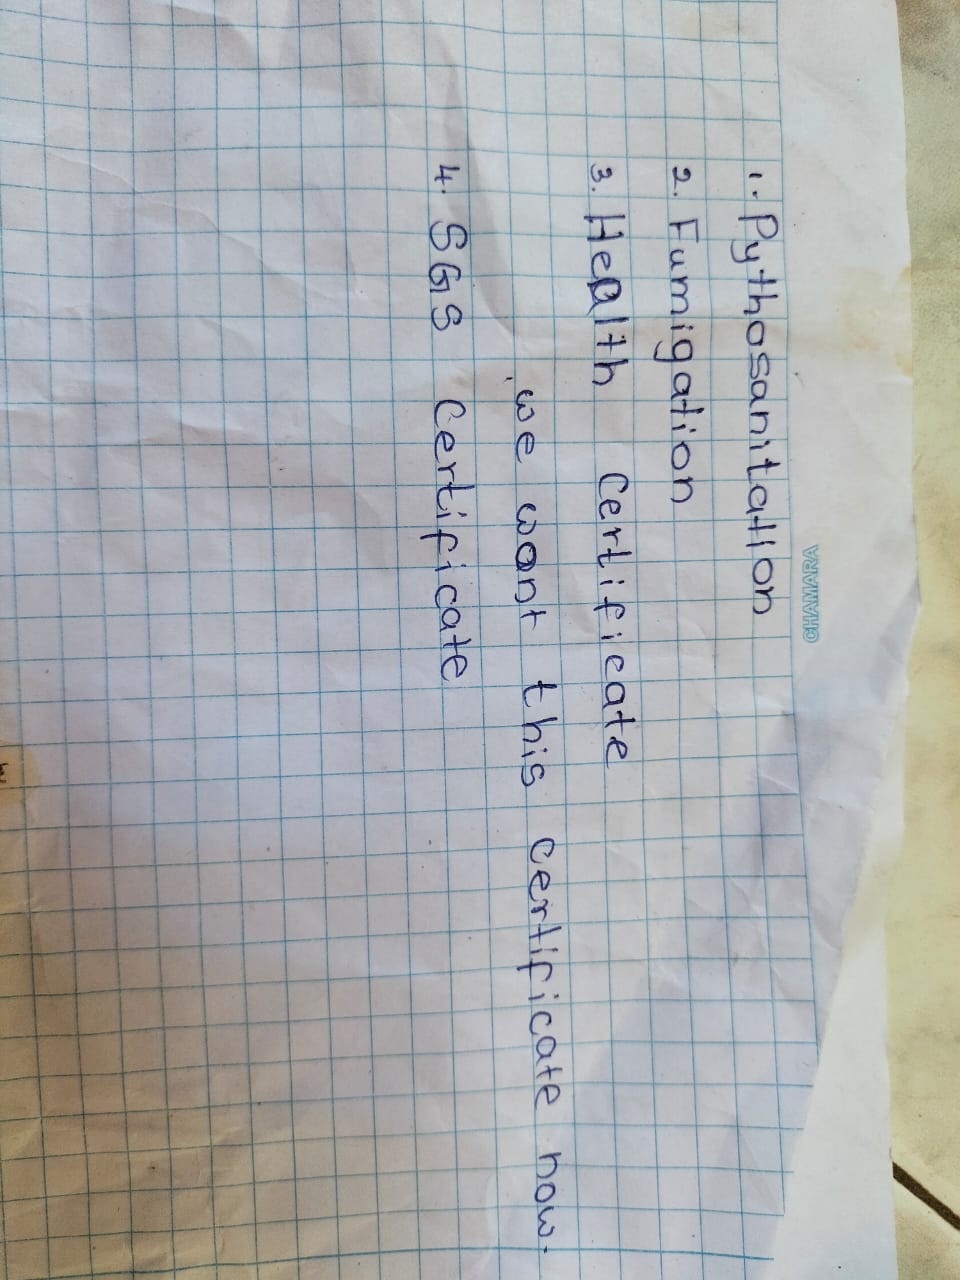 CHAMARA
1. Pythosanitation
2. Fumigation
3. Health Certificate
we want this certificate now.
4. SGS Certificate